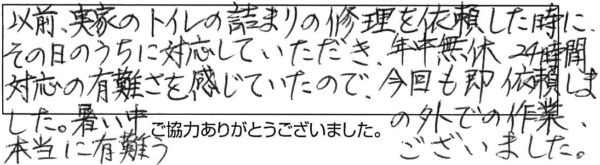 以前、実家のトイレの詰まりの修理を依頼した時に、
その日のうちに対応していただき、年中無休 24時間
対応の有難さを感じていたので、今回も即依頼しま
した。暑い中 の外での作業、
ご協力ありがとうございました。
本当に有難う ございました。